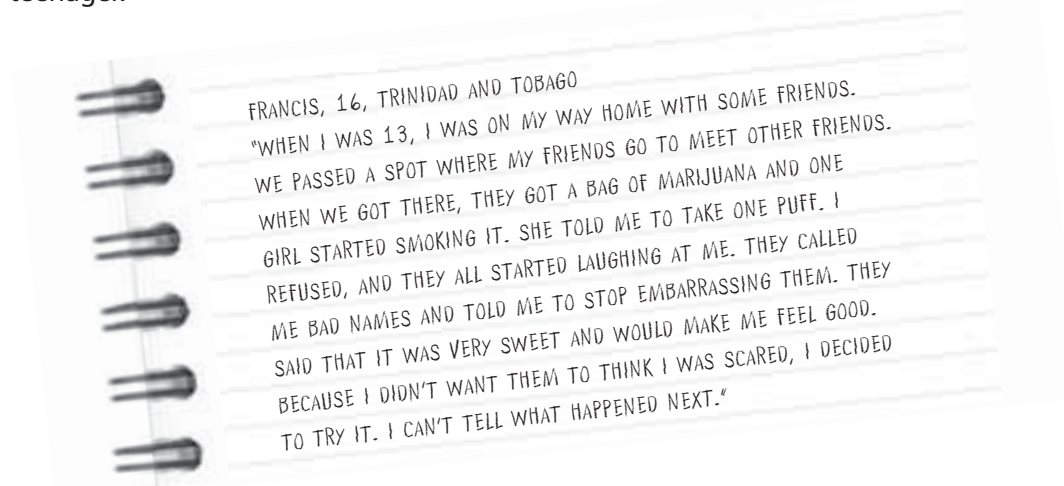 FRANCIS, 16, TRINIDAD AND TOBAGO
"WHEN I WAS 13, I WAS ON MY WAY HOME WITH SOME FRIENDS.
WE PASSED A SPOT WHERE MY FRIENDS GO TO MEET OTHER FRIENDS.
WHEN WE GOT THERE, THEY GOT A BAG OF MARIJUANA AND ONE
GIRL STARTED SMOKING IT. SHE TOLD ME TO TAKE ONE PUFF. I
REFUSED, AND THEY ALL STARTED LAUGHING AT ME. THEY CALLED
ME BAD NAMES AND TOLD ME TO STOP EMBARRASSING THEM. THEY
SAID THAT IT WAS VERY SWEET AND WOULD MAKE ME FEEL GOOD.
BECAUSE I DIDN'T WANT THEM TO THINK I WAS SCARED, I DECIDED
TO TRY IT. I CAN'T TELL WHAT HAPPENED NEXT."